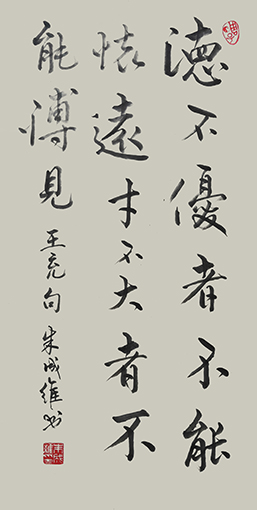 德不優者不能
懷遠才不大者不
能博見
王充句 朱成維书